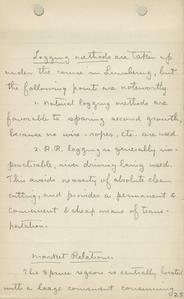 Logging methods are taken up
under the course in Lumbering, but
the following points are noteworthy.
1. Natural logging methods are
favorable to sparing second growth,
because no wire-ropes, etc. are used.
2. R.R. logging is generally im-
practicable, river driving being used.
This avoids necessity of absolute clean
cutting, and provides a permanent &
convenient & cheap means of trans-
portation.
Market Relations.
The spruce region is centrally located
with a large consumer consuming